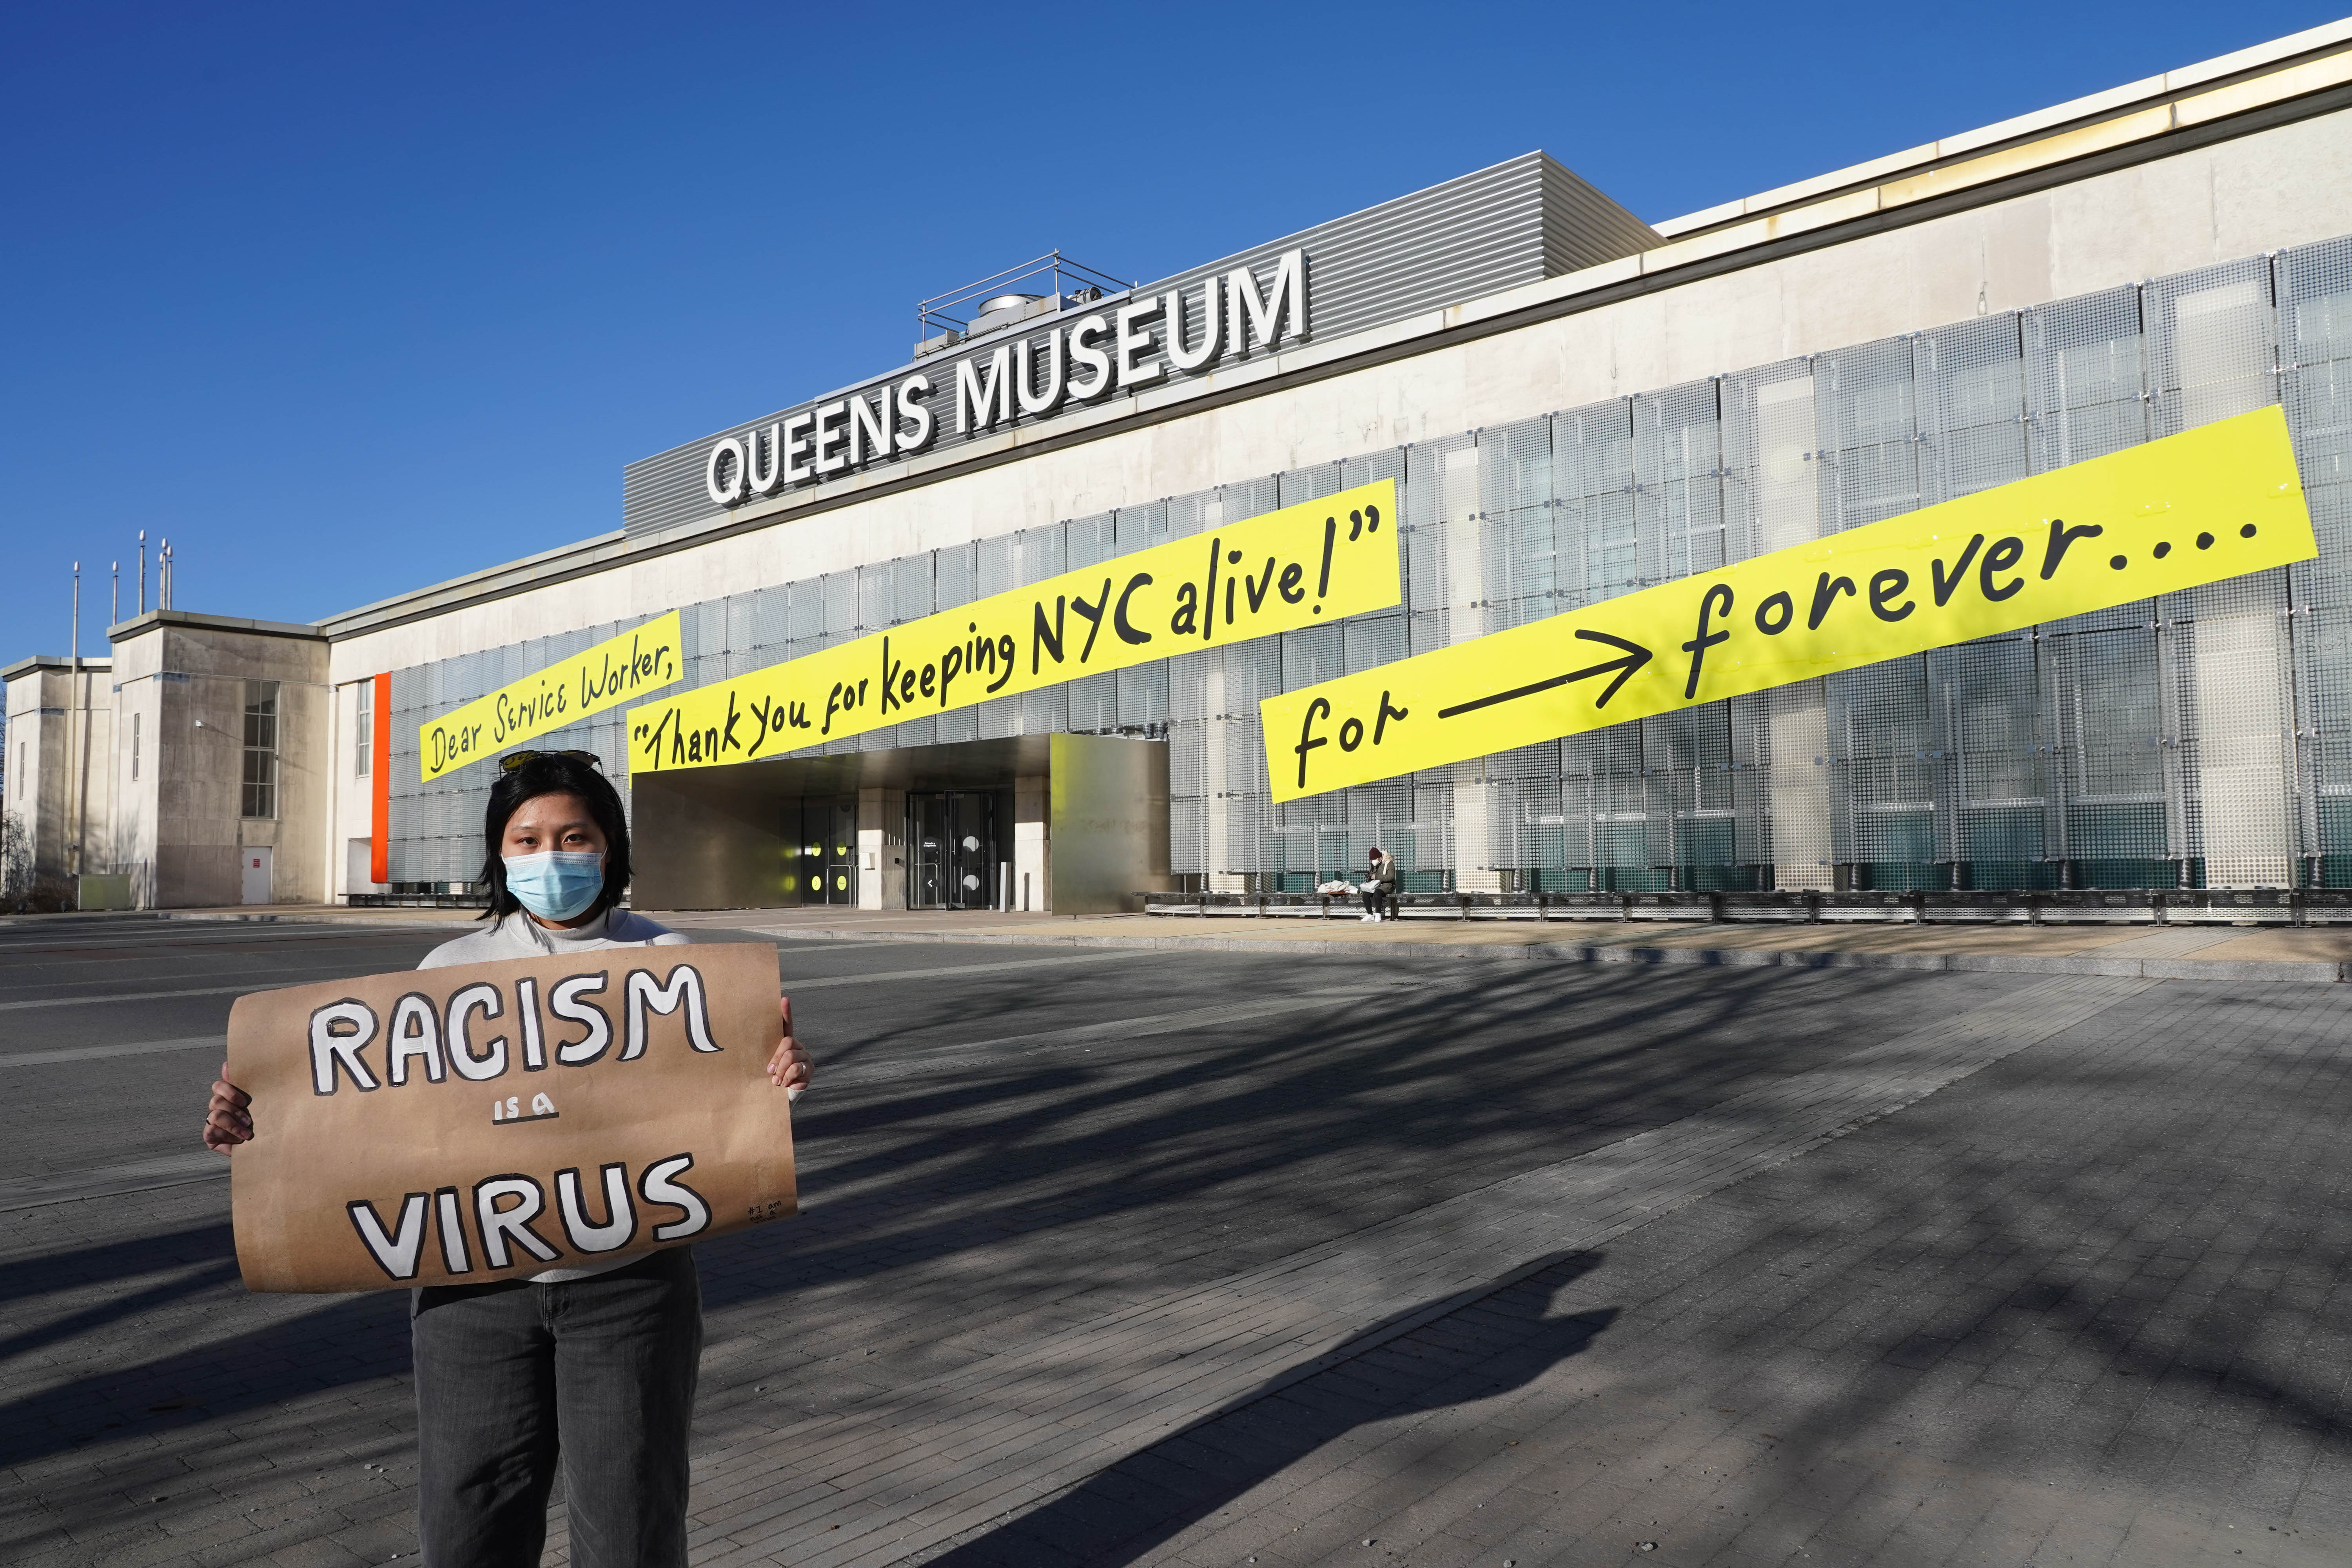 QUEENS MUSEUM
Dear Service Worker,
“Thank you for keeping NYC alive!”
for → forever....
RACISM
IS A
VIRUS
#I am
not a